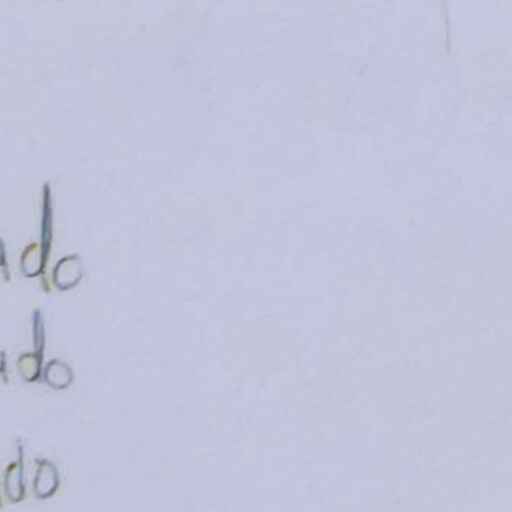 do
do
do